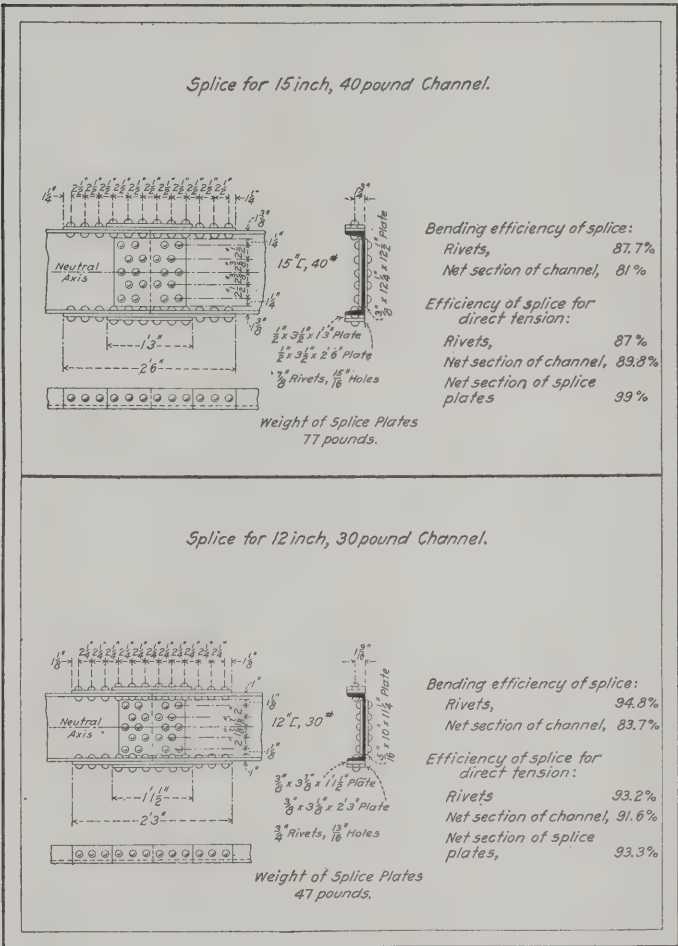 Splice for 15 inch, 40 pound Channel.
1¼" 2½" 2½" 2½" 2½" 2½" 2½" 2½" 2½" 2½" 2½" 2½" 1¼"
1⅜"
1¼"
Neutral
Axis
15"[, 40#
1¼"
1⅜"
⅜ x 12¼ x 12½" Plate
½" x 3½" x 1'3" Plate
½" x 3½" x 2'6" Plate
⅞" Rivets, 15/16" Holes
1'3"
2'6"
Weight of Splice Plates
77 pounds.
Bending efficiency of splice:
Rivets, 87.7%
Net section of channel, 81%
Efficiency of splice for
direct tension:
Rivets, 87%
Net section of channel, 89.8%
Net section of splice
plates 99%
Splice for 12 inch, 30 pound Channel.
1⅛" 2¼" 2¼" 2¼" 2¼" 2¼" 2¼" 2¼" 2¼" 2¼" 1⅛"
1"
1⅛"
Neutral
Axis
12"[, 30#
1⅛"
1"
1 9/16"
5/16 x 10 x 11¼" Plate
⅜" x 3⅛" x 1'1½" Plate
⅜" x 3⅛" x 2'3" Plate
¾" Rivets, 13/16" Holes
1'1½"
2'3"
Weight of Splice Plates
47 pounds.
Bending efficiency of splice:
Rivets, 94.8%
Net section of channel, 83.7%
Efficiency of splice for
direct tension:
Rivets 93.2%
Net section of channel, 91.6%
Net section of splice
plates, 93.3%